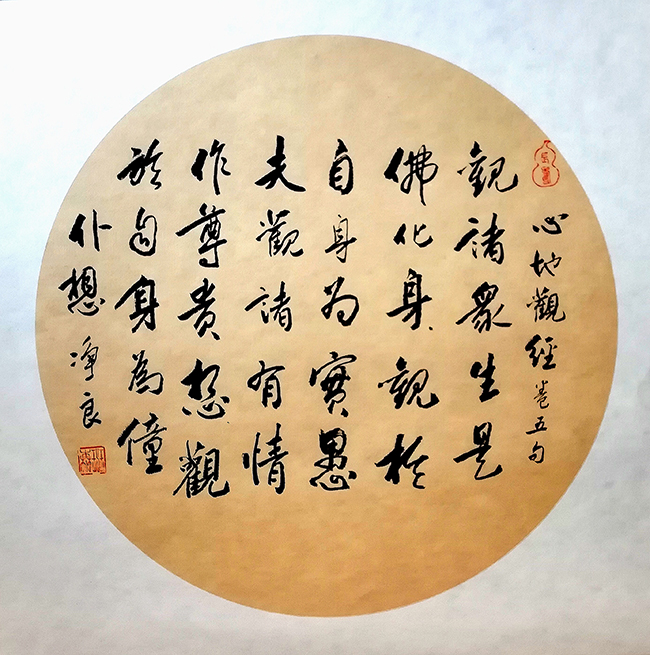 心地觀經卷五句
觀諸眾生是
佛化身觀於
自身為實愚
夫觀諸有情
作尊貴想觀
於自身為僮
仆想 淨良